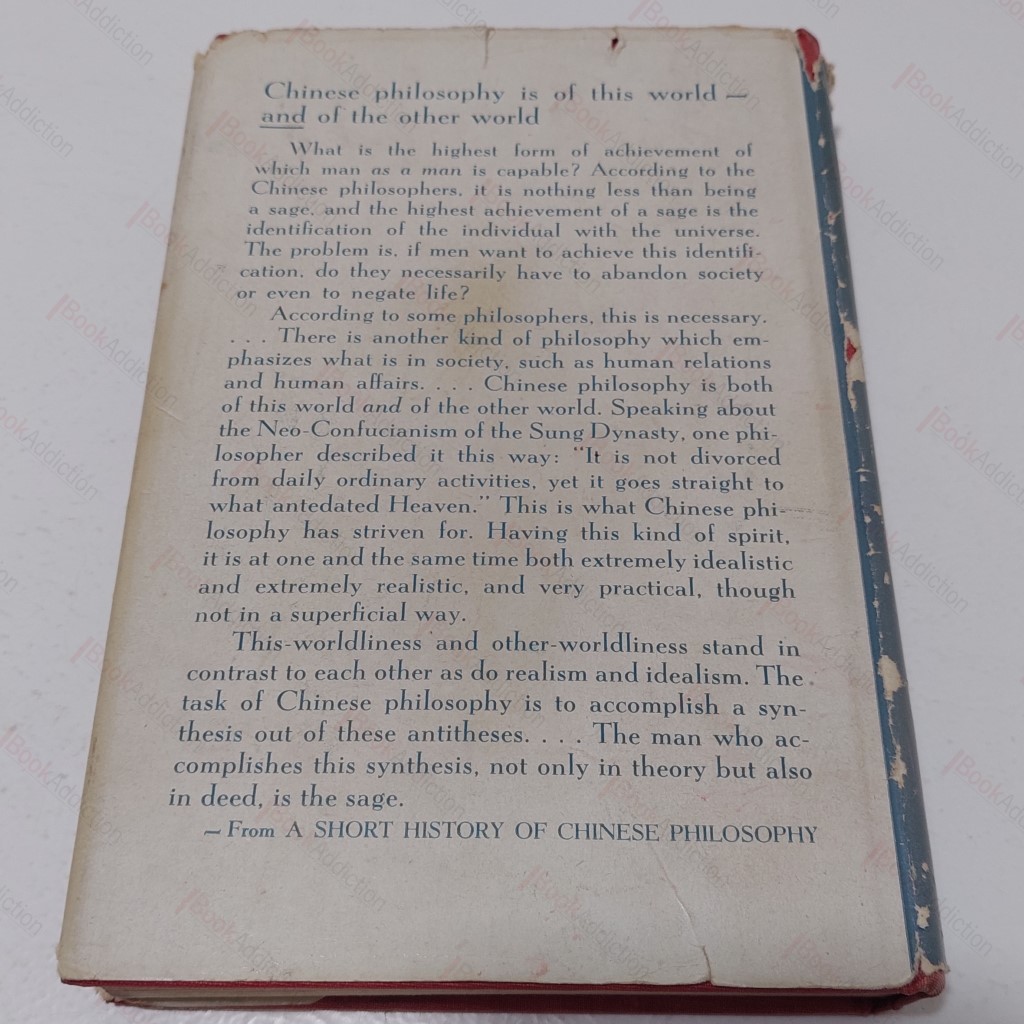 Chinese philosophy is of this world —
and of the other world
What is the highest form of achievement of
which man as a man is capable? According to the
Chinese philosophers, it is nothing less than being
a sage, and the highest achievement of a sage is the
identification of the individual with the universe.
The problem is, if men want to achieve this identifi-
cation, do they necessarily have to abandon society
or even to negate life?
According to some philosophers, this is necessary.
. . . There is another kind of philosophy which em-
phasizes what is in society, such as human relations
and human affairs. . . . Chinese philosophy is both
of this world and of the other world. Speaking about
the Neo-Confucianism of the Sung Dynasty, one phi-
losopher described it this way: "It is not divorced
from daily ordinary activities, yet it goes straight to
what antedated Heaven." This is what Chinese phi-
losophy has striven for. Having this kind of spirit,
it is at one and the same time both extremely idealistic
and extremely realistic, and very practical, though
not in a superficial way.
This-worldliness and other-worldliness stand in
contrast to each other as do realism and idealism. The
task of Chinese philosophy is to accomplish a syn-
thesis out of these antitheses. . . . The man who ac-
complishes this synthesis, not only in theory but also
in deed, is the sage.
— From A SHORT HISTORY OF CHINESE PHILOSOPHY
BookAddiction